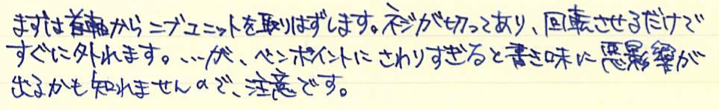 まずは首軸からニブユニットを取りはずします。ネジが切ってあり、回転させるだけで
すぐに外れます。…が、ペンポイントにさわりすぎると書き味に悪影響が
出るかも知れませんので、注意です。